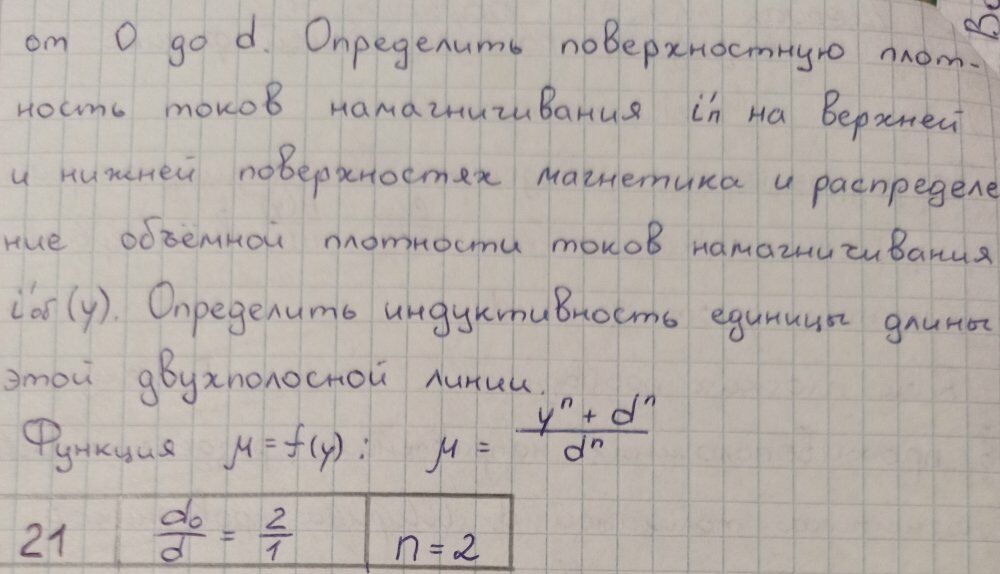 от 0 до d. Определить поверхностную плот-
ность токов намагничивания i'п на верхней
и нижней поверхностях магнетика и распределе
ние объёмной плотности токов намагничивания
i'об(y). Определить индуктивность единицы длины
этой двухполосной линии.
Функция μ = f(y): μ = (yⁿ + dⁿ)/dⁿ
21 d₀/d = 2/1 n = 2